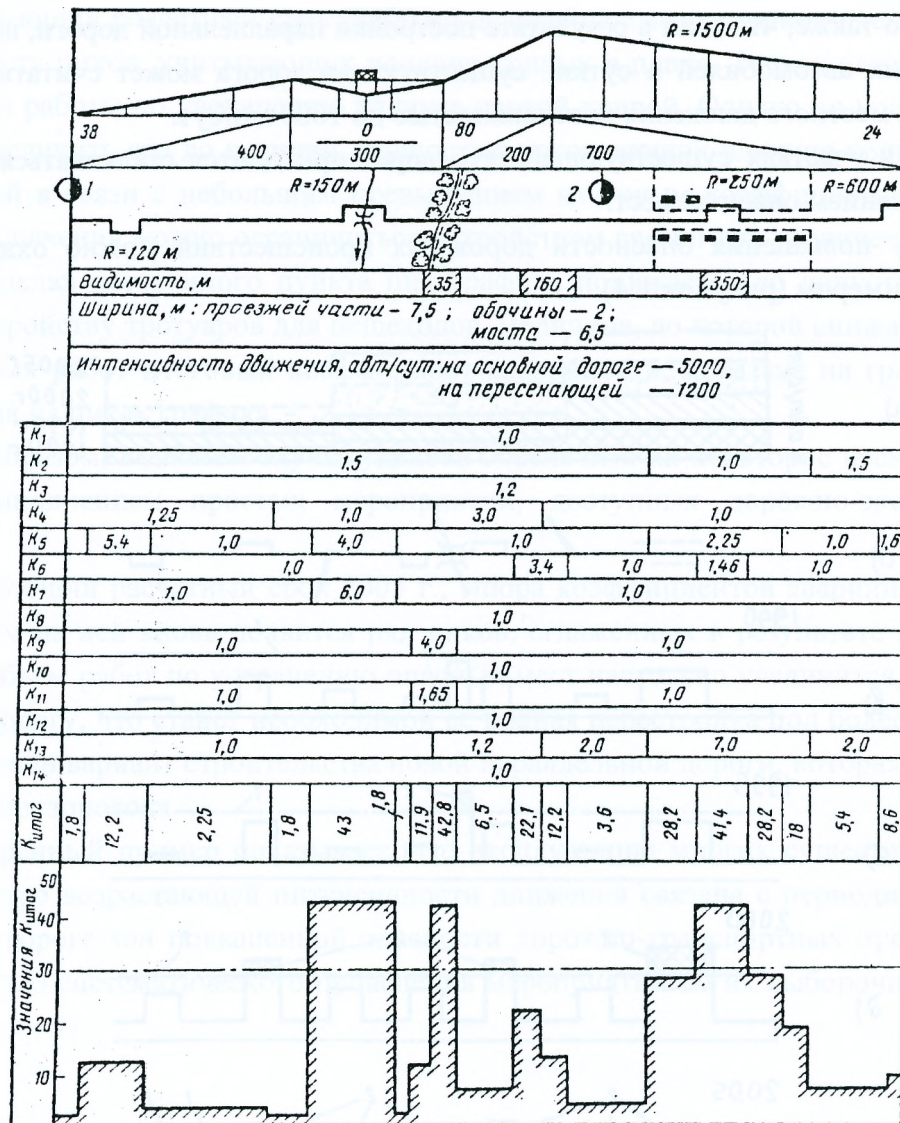 R=1500м
38 0 80 24
400 300 200 700
1 R=150м 2 R=250м R=600м
R=120м
Видимость, м 35 160 350
Ширина, м: проезжей части – 7,5; обочины – 2;
моста – 6,5
Интенсивность движения, авт/сут: на основной дороге – 5000,
на пересекающей – 1200
K1 1,0
K2 1,5 1,0 1,5
K3 1,2
K4 1,25 1,0 3,0 1,0
K5 5,4 1,0 4,0 1,0 2,25 1,0 1,6
K6 1,0 3,4 1,0 1,46 1,0
K7 1,0 6,0 1,0
K8 1,0
K9 1,0 4,0 1,0
K10 1,0
K11 1,0 1,65 1,0
K12 1,0
K13 1,0 1,2 2,0 7,0 2,0
K14 1,0
Kитог 1,8 12,2 2,25 1,8 43 1,8 11,9 42,8 6,5 22,1 12,2 3,6 28,2 41,4 28,2 18 5,4 8,6
Значения Kитог
50
40
30
20
10